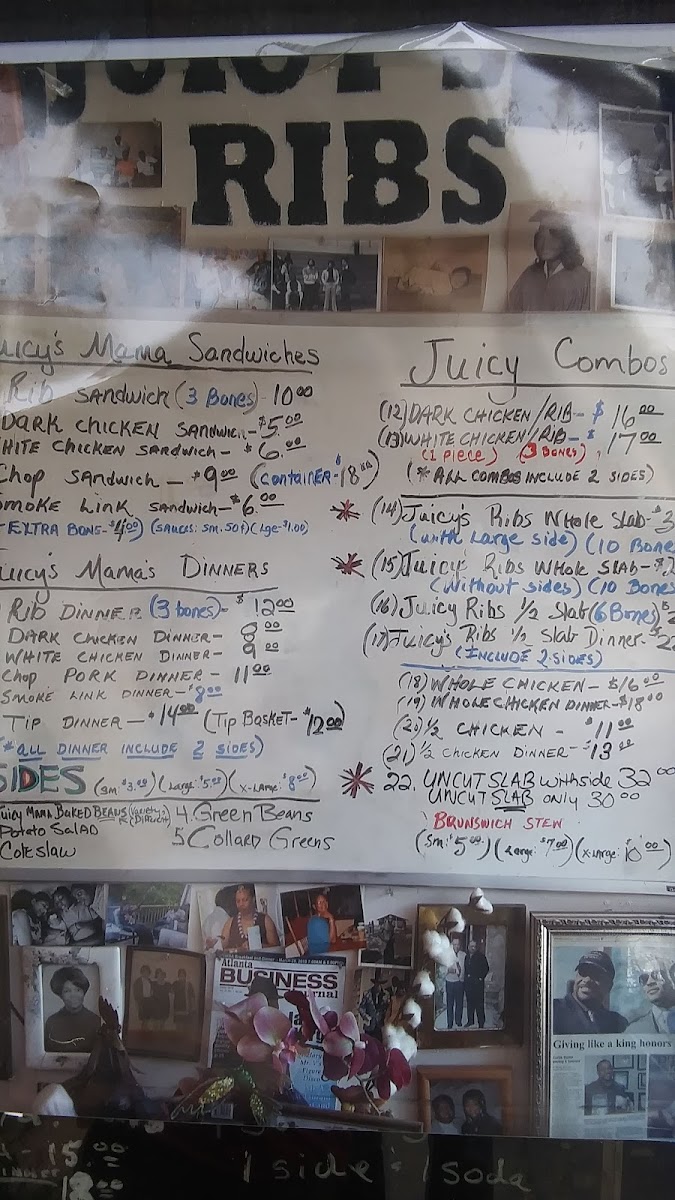 JUICY'S
RIBS
uicy's Mama Sandwiches
Rib Sandwich (3 Bones)- 10 00
Dark Chicken Sandwich-$5.00
HITE CHICKEN SANDWICH- $6.00
Chop Sandwich - $9 00 (CONTAINER-$18 00)
SMOKE LINK SANDWICH-$6.00
EXTRA BONE-$4 00) (SAUCES: SM. 50¢)(Lge-$1.00)
uicy's Mama's DINNERS
RIB DINNER (3 bones)- $12 00
DARK CHICKEN DINNER- 8 00
WHITE CHICKEN DINNER- 9 00
Chop PORK DINNER - 11 00
SMOKE LINK DINNER-$8 00
TIP DINNER-$14 00 (TIP BASKET-$12 00)
(*ALL DINNER INCLUDE 2 SIDES)
SIDES (SM: $3.00)(Large: $5.00)(X-LARGE: $8 00)
uicy Mama BAKED BEANS
Potato SalAD
Coleslaw
4. Green Beans
5 Collard Greens
Juicy Combos
(12) DARK CHICKEN/RIB- $16 00
(13) WHITE CHICKEN/RIB- $17 00
(1 PIECE) (3 BONES)
(*ALL COMBOS INCLUDE 2 SIDES)
* (14) Juicy's Ribs Whole Slab-$3
(with Large side) (10 Bone
* (15) Juicy's Ribs Whole SLAB-$2
(Without sides) (10 Bones
(16) Juicy Ribs 1/2 Slab (6 Bones) $2
(17) Juicy's Ribs 1/2 Slab Dinner-$22
(INCLUDE 2 SIDES)
(18) WHOLE CHICKEN-$16 00
(19) WHOLE CHICKEN DINNER-$18 00
(20) 1/2 CHICKEN - $11 00
(21) 1/2 CHICKEN DINNER-$13 00
* 22. UNCUT SLAB with side 32 00
UNCUT SLAB only 30 00
BRUNSWICH STEW
(Sm: $5 00)(Large: $7 00)(X-Large: 10 00)
Atlanta
BUSINESS
Giving like a king honors
15.00
18 00
1 side + 1 soda